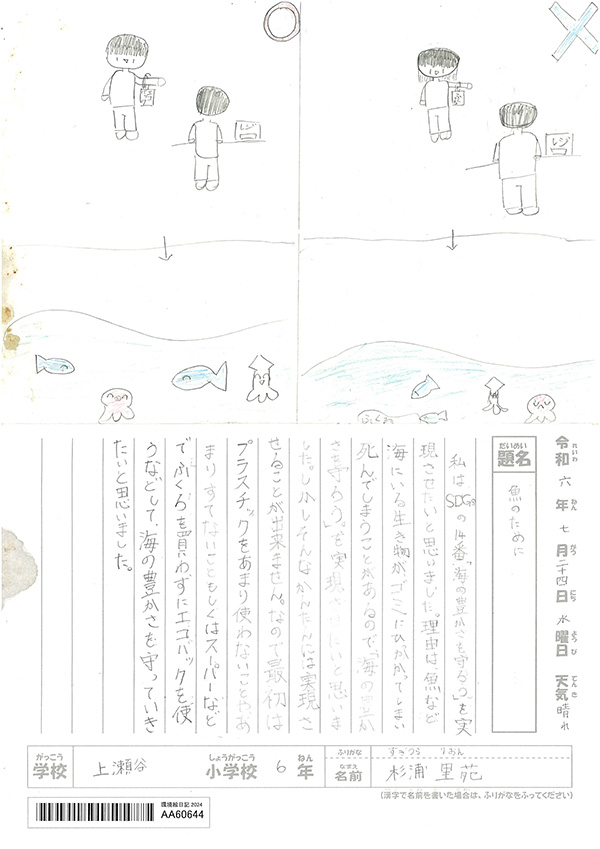 レジ
レジ
令和 六 年 七 月 二十四 日 水 曜日 天気 晴れ
れいわ ねん がつ にち ようび てんき
だいめい
題名
魚のために
私はSDGsの14番「海の豊かさを守ろう」を実
現させたいと思いました。理由は魚など
海にいる生き物がゴミにひっかかってしまい
死んでしまうことがあるので「海の豊か
さを守ろう」を実現させたいと思いま
した。しかしそんなかんたんには実現さ
せることが出来ません。なので最初は
プラスチックをあまり使わないことやあ
まりすてないこともしくはスーパーなど
でふくろを買わずにエコバックを使
うなどして、海の豊かさを守っていき
たいと思いました。
がっこう しょうがっこう ねん ふりがな すぎうら りおん
学校 上瀬谷 小学校 6 年 なまえ 名前 杉浦 里苑
(漢字で名前を書いた場合は、ふりがなをふってください)
環境絵日記 2024
AA60644